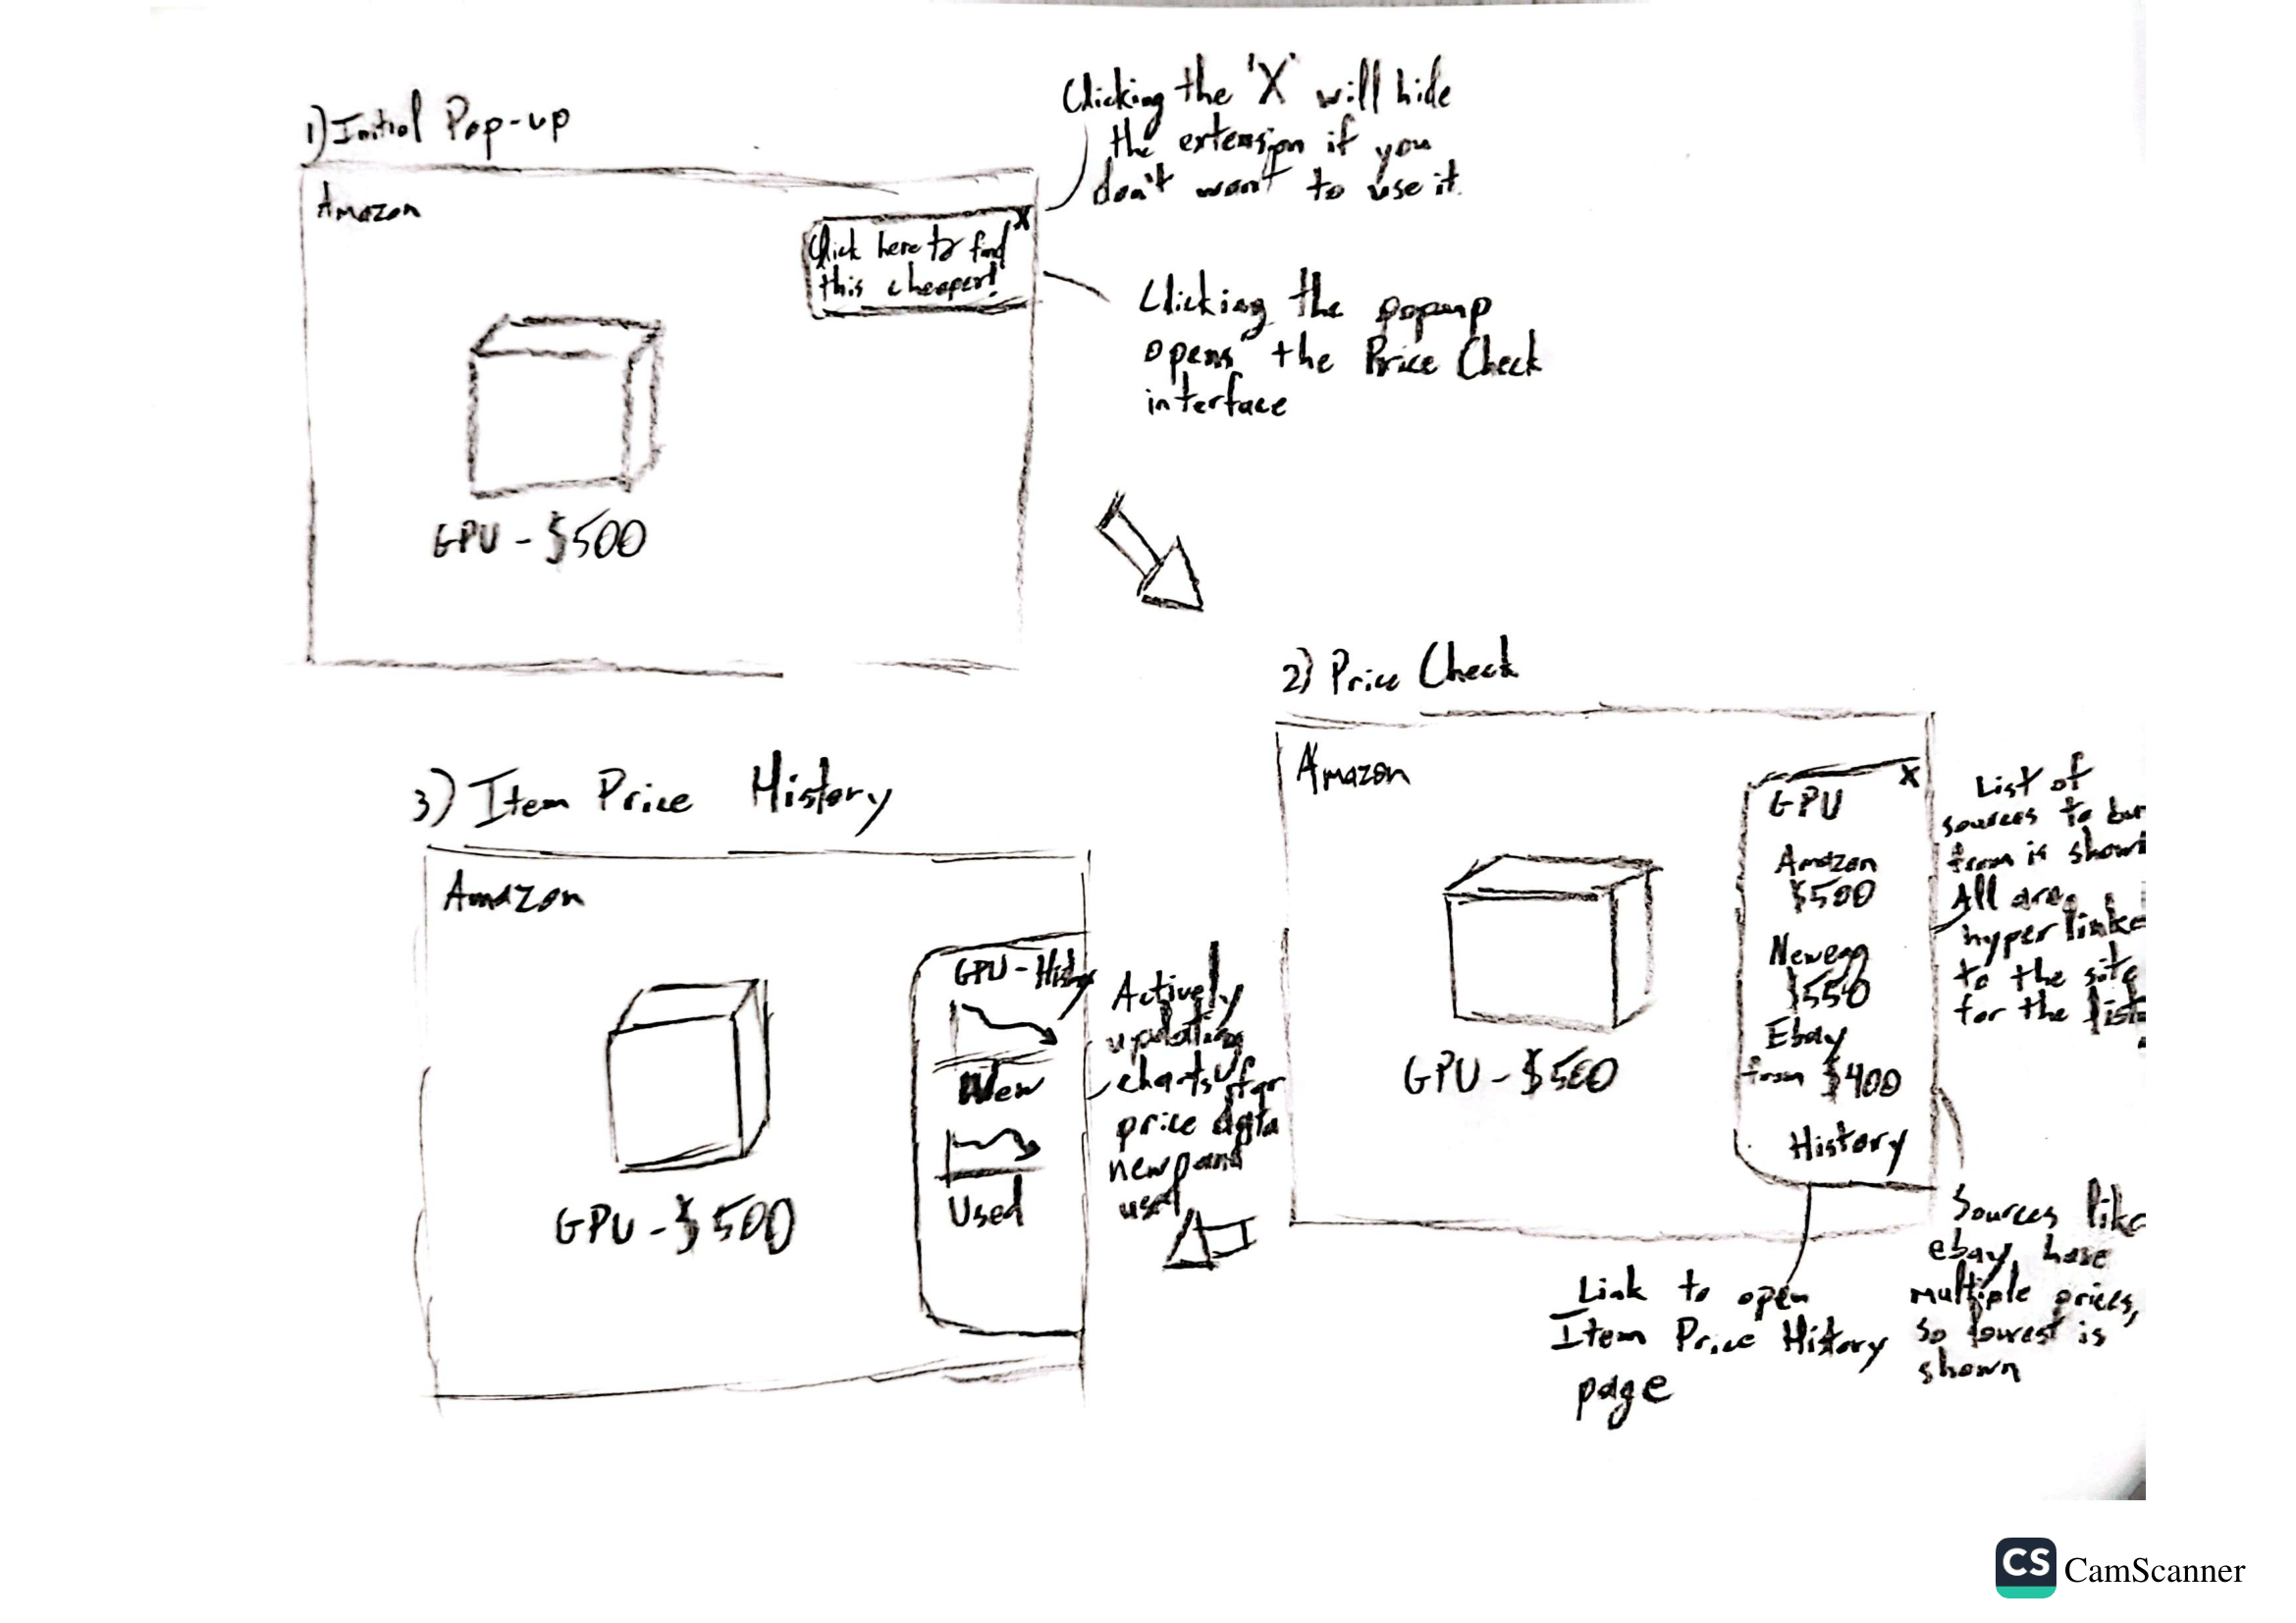 1) Initial Pop-up
Amazon
X
Click here to find
this cheaper!
GPU - $500
Clicking the 'X' will hide
the extension if you
don't want to use it.
Clicking the popup
opens the Price Check
interface
2) Price Check
Amazon
GPU - $500
X
GPU
Amazon
$500
Newegg
$550
Ebay
from $400
History
List of
sources to
from is
All are
to the site
for the
Sources like
ebay have
multiple prices,
so lowest is
shown
Link to open
Item Price History
page
3) Item Price History
Amazon
GPU - $500
GPU - History
New
Used
Actively
updating
charts for
price data
new and
used
CS CamScanner